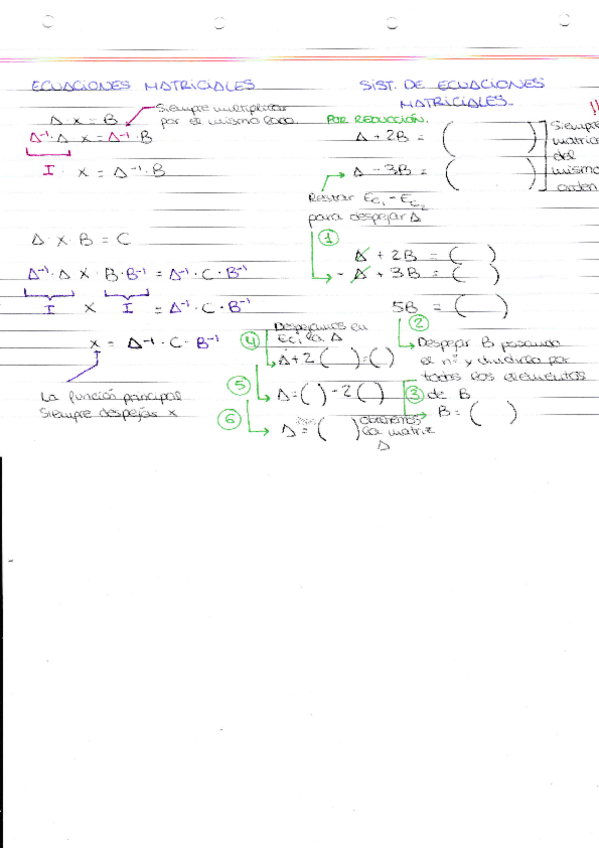 ECUACIONES MATRICIALES
A X = B
Siempre multiplicar
por el mismo lado.
A⁻¹·A X = A⁻¹·B
I · X = A⁻¹·B
A X B = C
A⁻¹·A X · B·B⁻¹ = A⁻¹·C·B⁻¹
I X I = A⁻¹·C·B⁻¹
X = A⁻¹·C·B⁻¹
La función principal
Siempre despejas X
SIST. DE ECUACIONES
MATRICIALES.
POR REDUCCIÓN.
A + 2B = ( )
A - 3B = ( )
!!
Siempre
matrices
del
mismo
orden
Restar Ec₁ - Ec₂
para despejar A
1
A + 2B = ( )
- A + 3B = ( )
5B = ( )
2
Despejar B pasando
el nº y dividirlo por
todos los elementos
de B
3
B = ( )
4
Despejamos en
Ec₁ la A
A + 2 ( ) = ( )
5
A = ( ) - 2 ( )
6
A = ( )
obtenemos
la matriz
A